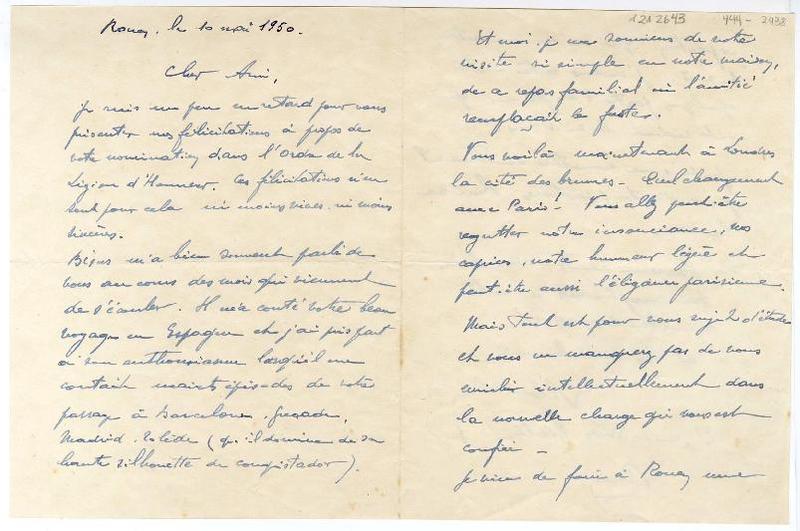 Rouen, le 10 mai 1950.
Cher Ami,
je suis un peu en retard pour vous
présenter mes félicitations à propos de
votre nomination dans l'Ordre de la
Légion d'Honneur. Ces félicitations n'en
sont pour cela ni moins vives, ni moins
sincères.
m'a bien souvent parlé de
vous au cours des mois qui viennent
de s'écouler. Il m'a conté votre beau
voyage en Espagne et j'ai pris part
à son enthousiasme lorsqu'il me
contait maints épisodes de votre
passage à Barcelone, Grenade,
Madrid, Tolède (qu'il domine de sa
haute silhouette de conquistador).
1212643 444-2938
Et moi, je me souviens de votre
visite si simple en notre maison,
de ce repas familial où l'amitié
remplaçait le faste.
Vous voilà maintenant à Londres
la cité des brumes - Quel changement
avec Paris! Vous allez peut-être
regretter notre insouciance, nos
caprices, notre humeur légère et
peut-être aussi l'élégance parisienne.
Mais tout est pour vous sujet d'étude
et vous ne manquerez pas de vous
enrichir intellectuellement dans
la nouvelle charge qui vous est
confiée -
Je viens de faire à Rouen une